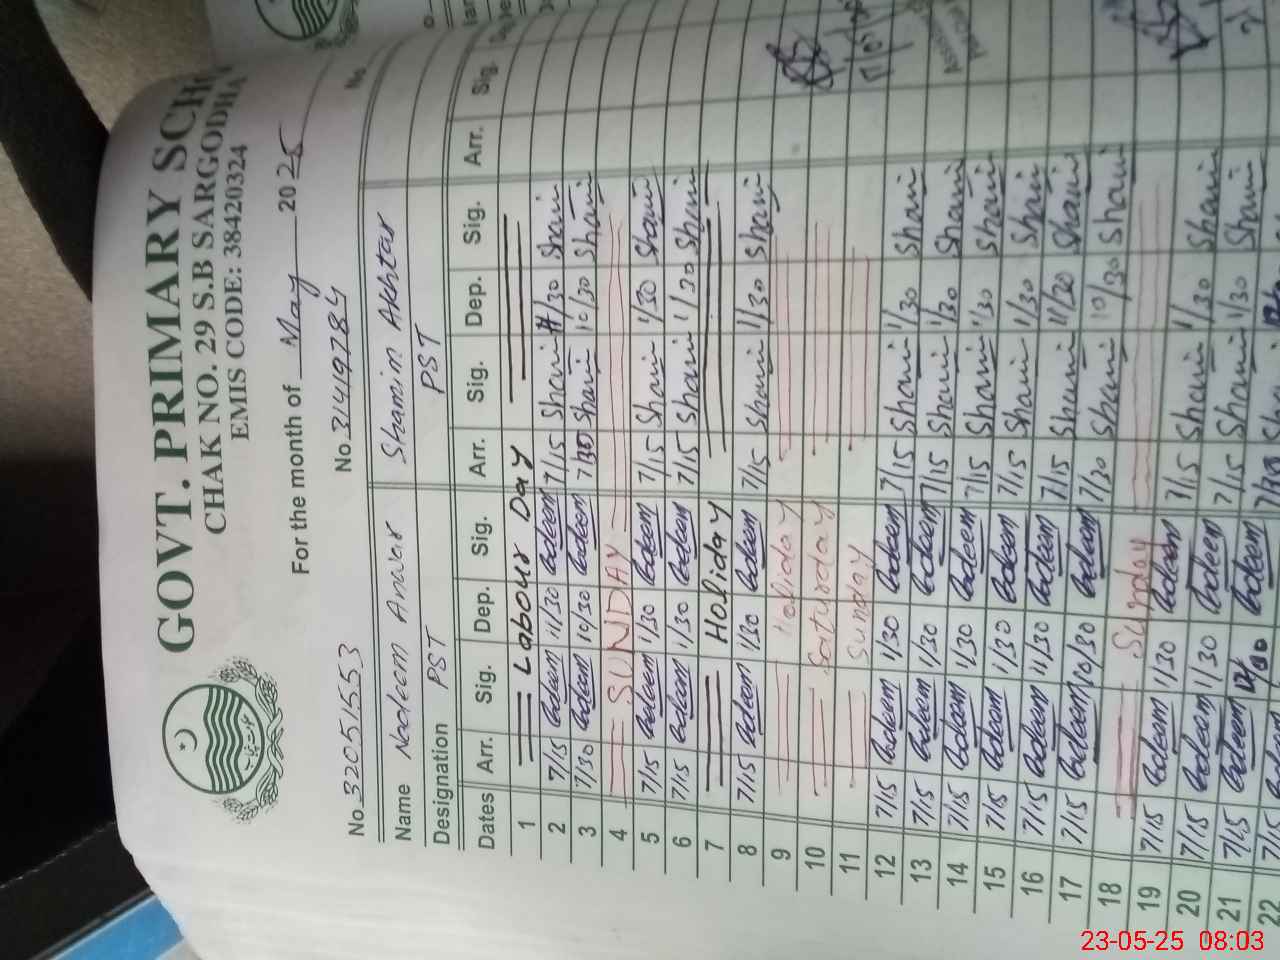 GOVT. PRIMARY SCH
CHAK NO. 29 S.B SARGODHA
EMIS CODE: 38420324
For the month of May 2025
No. 32051553 No. 31449784 No.
Name Nadeem Anwar Shamim Akhtar
Designation PST PST
Dates Arr. Sig. Dep. Sig. Arr. Sig. Dep. Sig. Arr. Sig.
1 Labour Day
2 7/15 Nadeem 11/30 Nadeem 7/15 Shami 11/30 Shami
3 7/30 Nadeem 10/30 Nadeem 7/30 Shami 10/30 Shami
4 SUNDAY
5 7/15 Nadeem 1/30 Nadeem 7/15 Shami 1/30 Shami
6 7/15 Nadeem 1/30 Nadeem 7/15 Shami 1/30 Shami
7 Holiday
8 7/15 Nadeem 1/30 Nadeem 7/15 Shami 1/30 Shami
9 Holiday
10 Saturday
11 Sunday
12 7/15 Nadeem 1/30 Nadeem 7/15 Shami 1/30 Shami
13 7/15 Nadeem 1/30 Nadeem 7/15 Shami 1/30 Shami
14 7/15 Nadeem 1/30 Nadeem 7/15 Shami 1/30 Shami
15 7/15 Nadeem 1/30 Nadeem 7/15 Shami 1/30 Shami
16 7/15 Nadeem 11/30 Nadeem 7/15 Shami 11/30 Shami
17 7/15 Nadeem 10/30 Nadeem 7/30 Shami 10/30 Shami
18 Sunday
19 7/15 Nadeem 1/30 Nadeem 7/15 Shami 1/30 Shami
20 7/15 Nadeem 1/30 Nadeem 7/15 Shami 1/30 Shami
21 7/15 Nadeem Nadeem
22 7/15
23-05-25 08:03